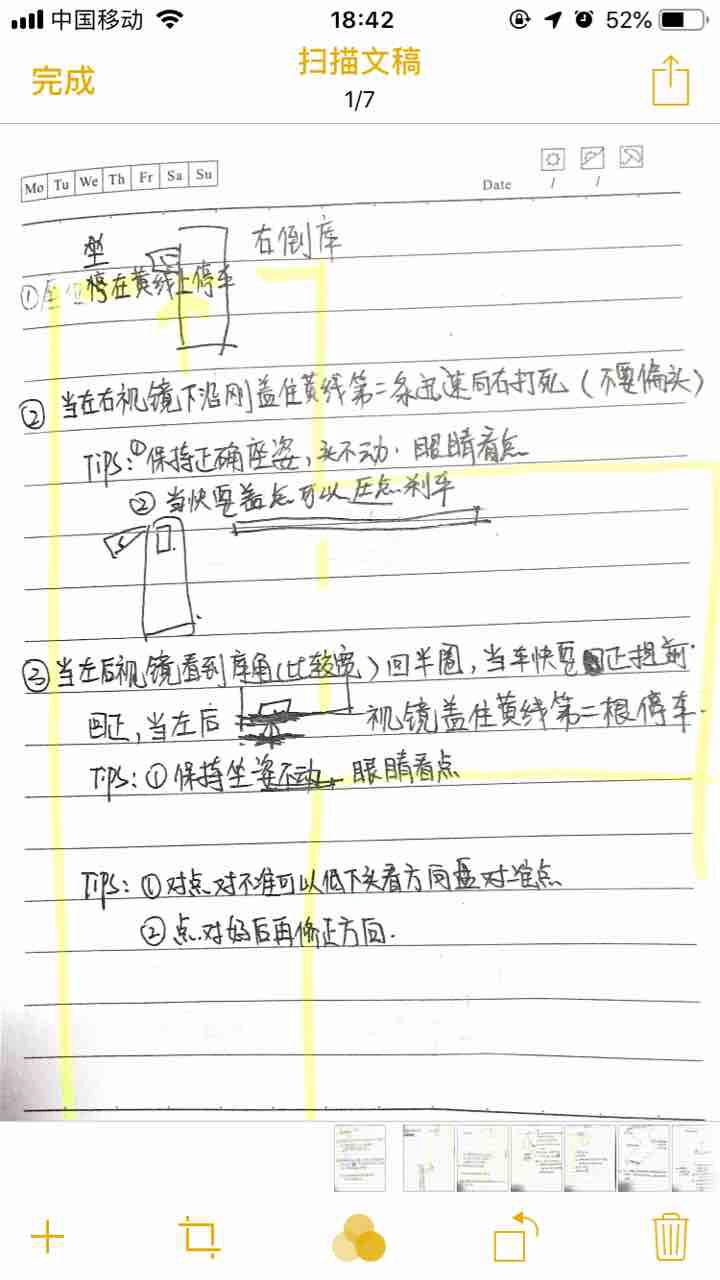 中国移动 18:42 52%
完成 扫描文稿
1/7
Mo Tu We Th Fr Sa Su
Date / /
右倒库
坐
① 停在黄线上停车
② 当左右视镜下沿刚盖住黄线第二条迅速向右打死(不要偏头)
TIPS:①保持正确座姿,头不动.眼睛看点
②当快要盖点可以压点刹车
③当左后视镜看到库角(比较宽)回半圈,当车快要正提前
回正,当左后 视镜盖住黄线第二根停车.
TIPS:①保持坐姿不动,眼睛看点
TIPS:①对点对不准可以低下头看方向盘对准点
②点对好后再修正方向.